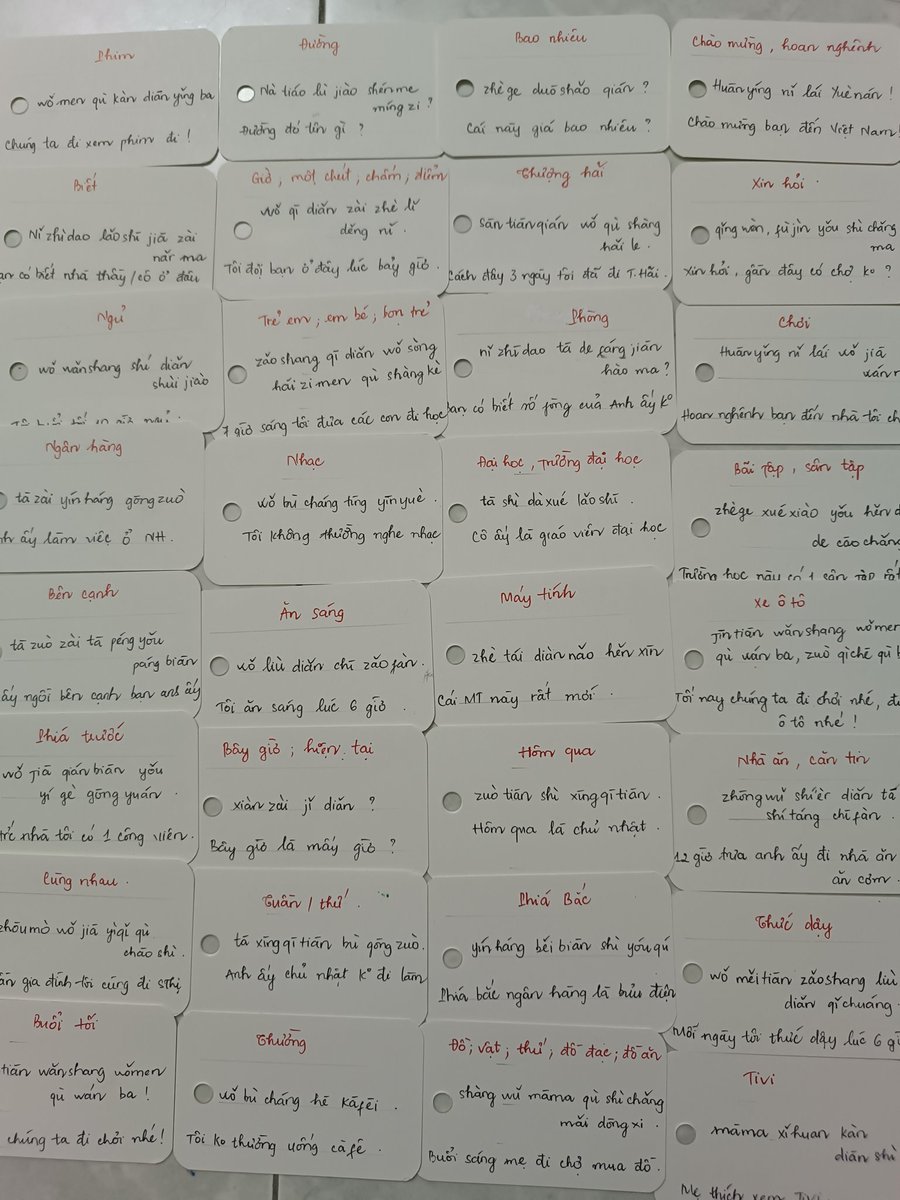 Phim
wǒ men qù kàn diàn yǐng ba
chúng ta đi xem phim đi !
Đường
Nà tiáo lù jiào shénme
míng zi ?
Đường đó tên gì ?
Bao nhiêu
zhège duōshǎo qián ?
Cái này giá bao nhiêu ?
Chào mừng, hoan nghênh
Huānyíng nǐ lái Yuènán !
Chào mừng bạn đến Việt Nam !
Biết
Nǐ zhīdao lǎoshī jiā zài
nǎr ma
có biết nhà thầy / cô ở đâu
Giờ ; một chút ; chấm ; điểm
Wǒ qī diǎn zài zhè lǐ
děng nǐ.
Tôi đợi bạn ở đây lúc bảy giờ.
Thượng hải
sān tiān qián wǒ qù shàng
hǎi le.
Cách đây 3 ngày tôi đã đi T.Hải.
Xin hỏi .
qǐng wèn, fù jìn yǒu shì chǎng
ma
Xin hỏi, gần đây có chợ ko ?
Ngủ
wǒ wǎnshang shí diǎn
shuì jiào
Trẻ em ; em bé ; bọn trẻ
zǎoshang qī diǎn wǒ sòng
hái zi men qù shàng kè
7 giờ sáng tôi đưa các con đi học
Phòng
nǐ zhīdao tā de fáng jiān
hào ma ?
bạn có biết số fòng của Anh ấy ko
Chơi
Huānyíng nǐ lái wǒ jiā
Hoan nghênh bạn đến nhà tôi
Ngân hàng
tā zài yín háng gōng zuò
ấy làm việc ở NH.
Nhạc
Wǒ bù cháng tīng yīnyuè.
Tôi không thường nghe nhạc
Đại học, trường đại học
tā shì dàxué lǎoshī.
Cô ấy là giáo viên đại học
Bãi tập, sân tập
zhège xuéxiào yǒu hěn
de cāo chǎng
Trường học này có 1 sân tập rất
Bên cạnh
tā zuò zài tā péng yǒu
páng biān
ấy ngồi bên cạnh bạn anh ấy
Ăn sáng
wǒ liù diǎn chī zǎo fàn.
Tôi ăn sáng lúc 6 giờ .
Máy tính
zhè tái diàn nǎo hěn xīn
Cái MT này rất mới .
xe ô tô
Jīn tiān wǎn shang wǒmen
qù wán ba, zuò qì chē qù
Tối nay chúng ta đi chơi nhé,
ô tô nhé !
Phía trước
wǒ jiā qián biān yǒu
yí gè gōng yuán.
nhà tôi có 1 công viên.
Bây giờ ; hiện tại
xiàn zài jǐ diǎn ?
Bây giờ là mấy giờ ?
Hôm qua
zuò tiān shì xīng qī tiān.
Hôm qua là chủ nhật.
Nhà ăn, căn tin
zhōng wǔ shí èr diǎn tā
shí táng chī fàn.
12 giờ trưa anh ấy đi nhà ăn
ăn cơm.
Cùng nhau .
zhōu mò wǒ jiā yì qǐ qù
chāo shì.
gia đình tôi cùng đi sthị
Tuần / thứ .
tā xīng qī tiān bù gōng zuò.
Anh ấy chủ nhật ko đi làm
Phía Bắc
yín háng běi biān shì yóu jú
Phía bắc ngân hàng là bưu điện
Thức dậy
wǒ měi tiān zǎoshang liù
diǎn qǐ chuáng.
Mỗi ngày tôi thức dậy lúc 6
Buổi tối
tiān wǎn shang wǒmen
qù wán ba !
chúng ta đi chơi nhé !
Thường
wǒ bù cháng hē kāfēi .
Tôi ko thường uống cà fê .
Đồ ; vật ; thứ ; đồ đạc ; đồ ăn
shàng wǔ māma qù shì chǎng
mǎi dōng xi .
Buổi sáng mẹ đi chợ mua đồ.
Tivi
māma xǐ huan kàn
diàn shì
Mẹ thích xem Tivi